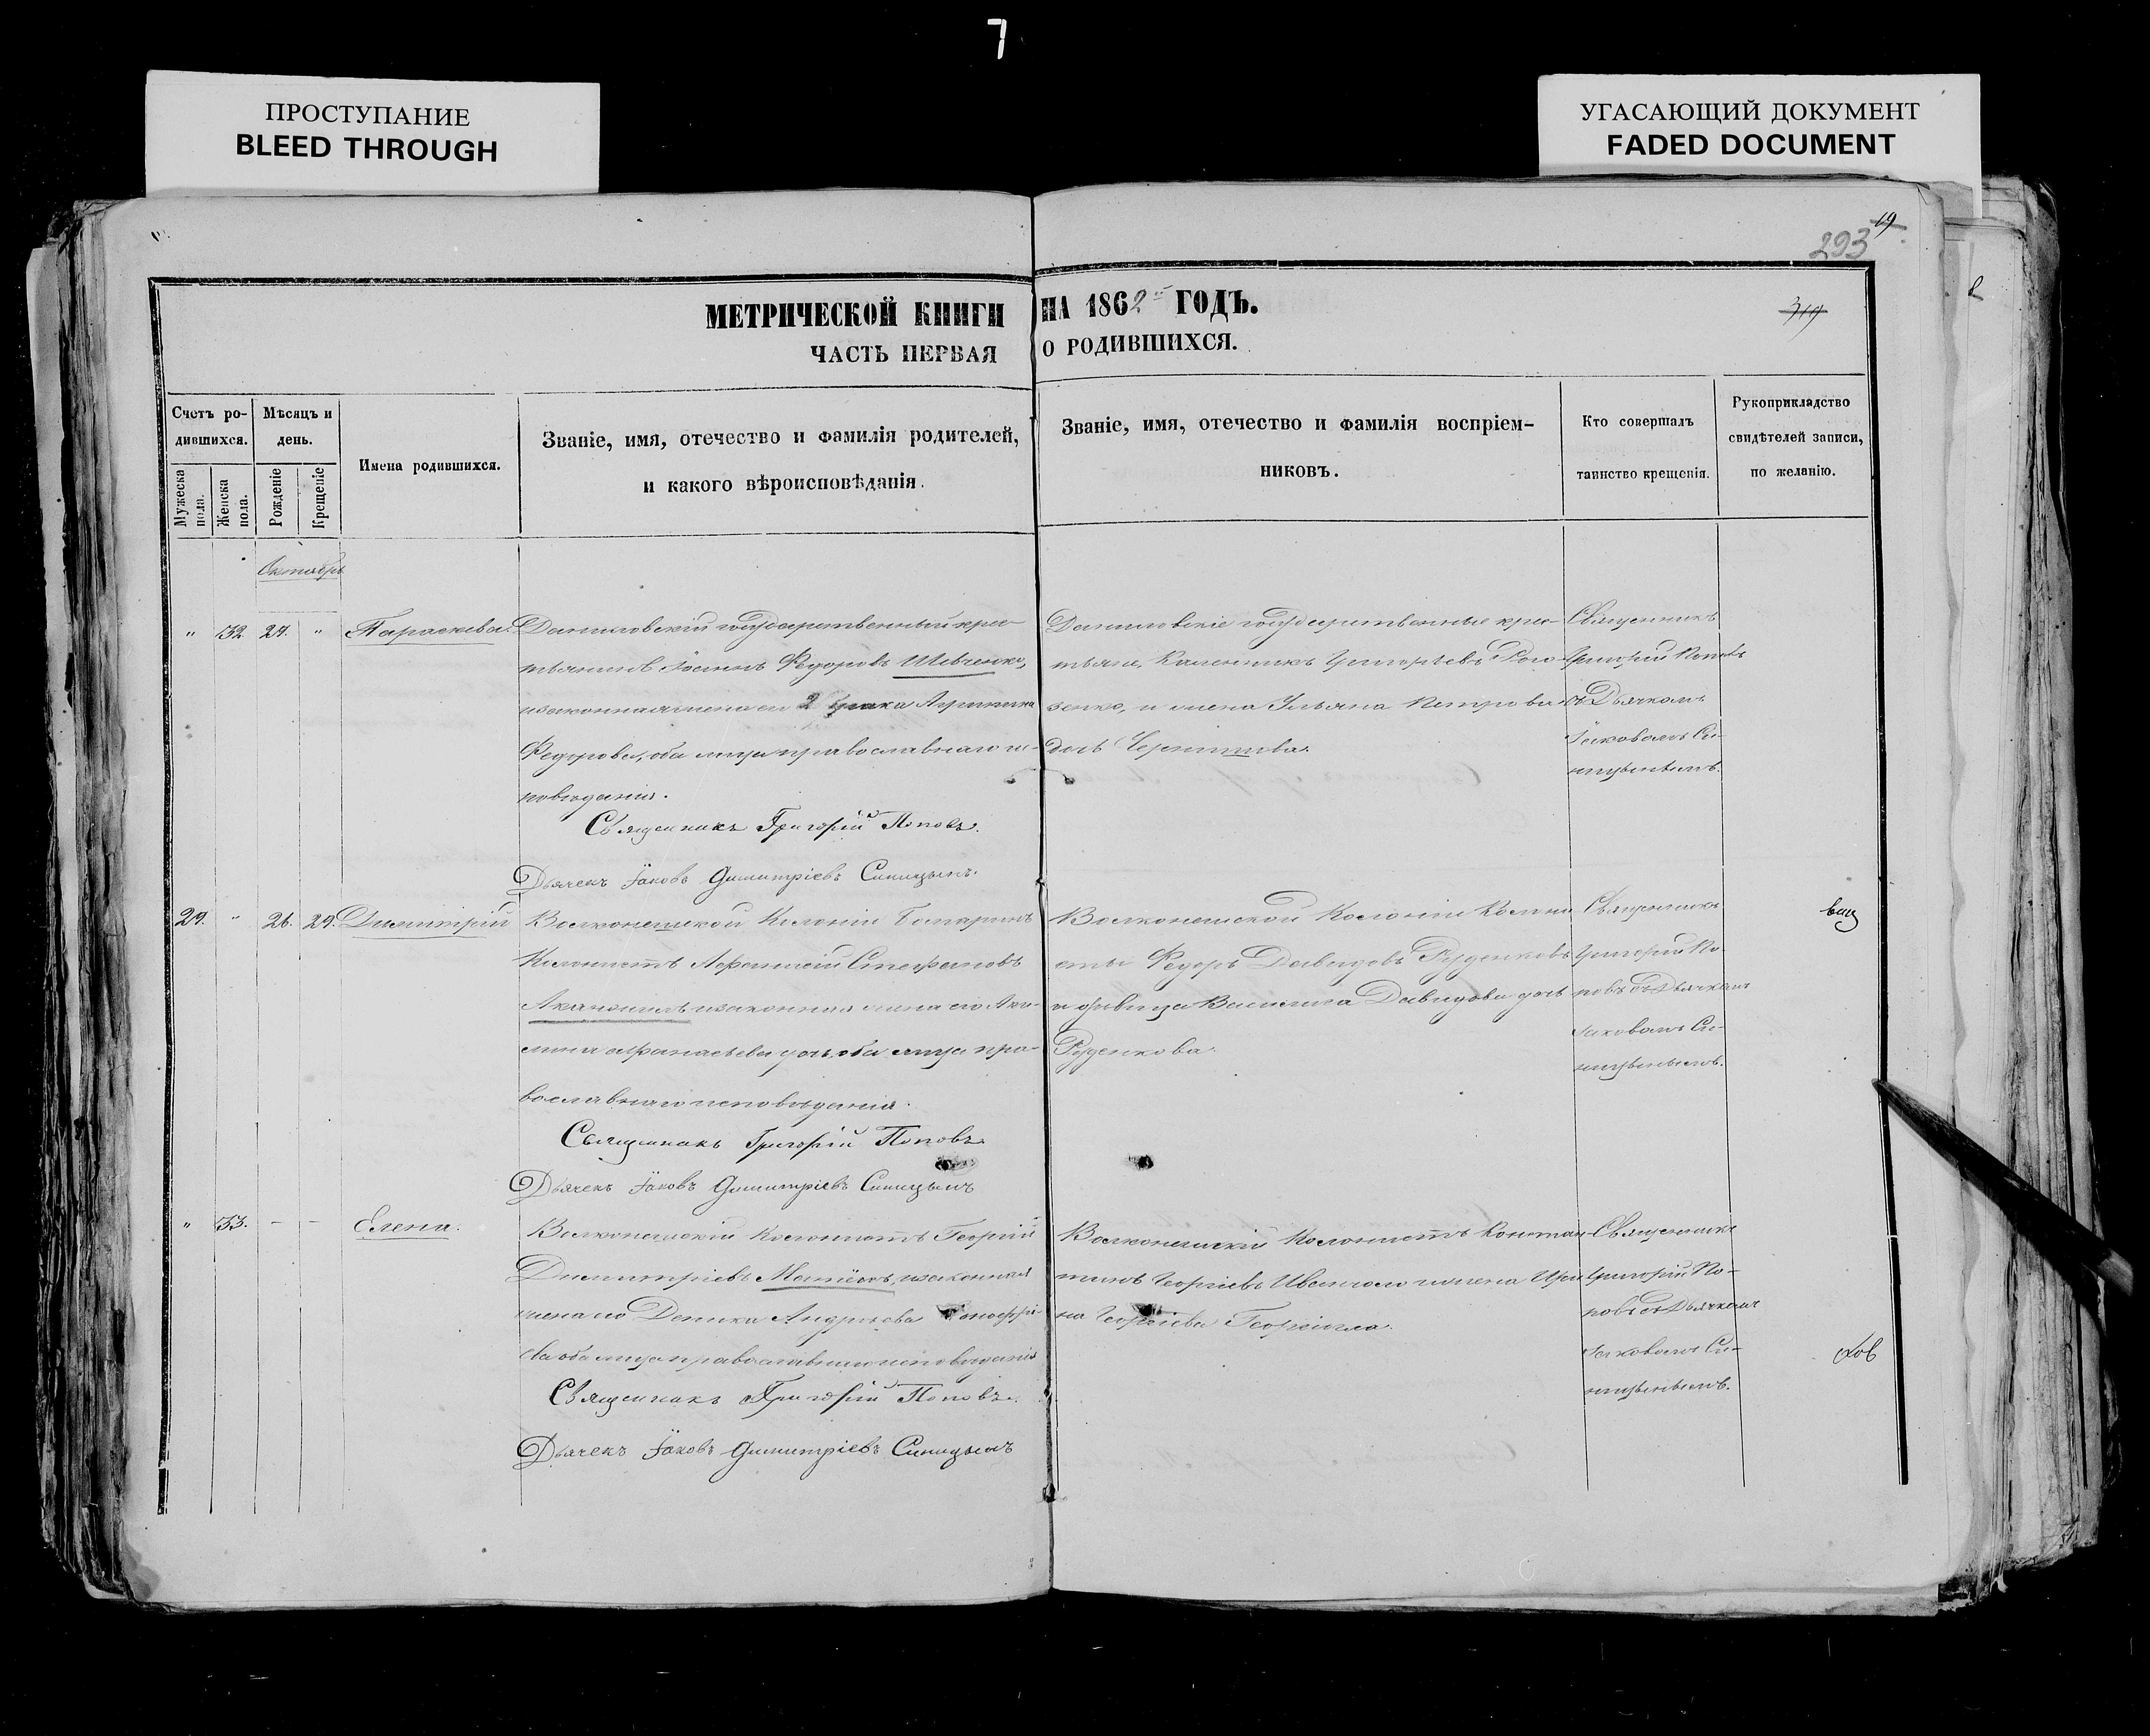 7
ПРОСТУПАНИЕ
BLEED THROUGH
УГАСАЮЩИЙ ДОКУМЕНТ
FADED DOCUMENT
19
293
319
МЕТРИЧЕСКОЙ КНИГИ НА 1862 ГОДЪ.
ЧАСТЬ ПЕРВАЯ О РОДИВШИХСЯ.
Счетъ ро-
дившихся.
Мѣсяцъ и
день.
Мужеска
пола.
Женска
пола.
Рожденіе
Крещеніе
Имена родившихся.
Званіе, имя, отечество и фамилія родителей,
и какого вѣроисповѣданія.
Званіе, имя, отечество и фамилія воспріем-
никовъ.
Кто совершалъ
таинство крещенія.
Рукоприкладство
свидѣтелей записи,
по желанію.
Октябрь
" 32 24. " Параскева.
Даниловскій государственный крес-
тьянинъ Іоаннъ Федоровъ Шевченко,
и законная жена его 2 брака
Федорова, оба лица православнаго ис-
повѣданія.
Священникъ Григорій Поповъ.
Дьячекъ Іаковъ Димитріевъ Синицынъ.
Даниловскіе государственные крес-
тьяне, Каленникъ Григорьевъ
зенко, и жена Ульяна Петрова
дочь
Священникъ
Григорій Поповъ
съ Дьячкомъ
Іаковомъ Си-
ницынымъ.
29. " 26. 29. Димитрій
Волконешской Колоніи Болгаринъ
Колонистъ Афанасій Стефановъ
и законная жена его Аку-
лина Афанасьева дочь, оба лица пра-
вославнаго исповѣданія.
Священникъ Григорій Поповъ
Дьячекъ Іаковъ Димитріевъ Синицынъ
Волконешской Колоніи Колони-
сты Федоръ Давидовъ Руденковъ
и дѣвица Василиса Давидова дочь
Руденкова.
Священникъ
Григорій По-
повъ съ Дьячкомъ
Іаковомъ Си-
ницынымъ.
" 33. - - Елена.
Волконешскій Колонистъ Георгій
Димитріевъ и законная
жена его Деника Андреева
ва оба лица православнаго исповѣданія
Священникъ Григорій Поповъ.
Дьячекъ Іаковъ Димитріевъ Синицынъ
Волконешскій Колонистъ Констан-
тинъ Георгіевъ Ивангло и жена Ири-
на Георгіева
Священникъ
Григорій По-
повъ съ Дьячкомъ
Іаковомъ Си-
ницынымъ.